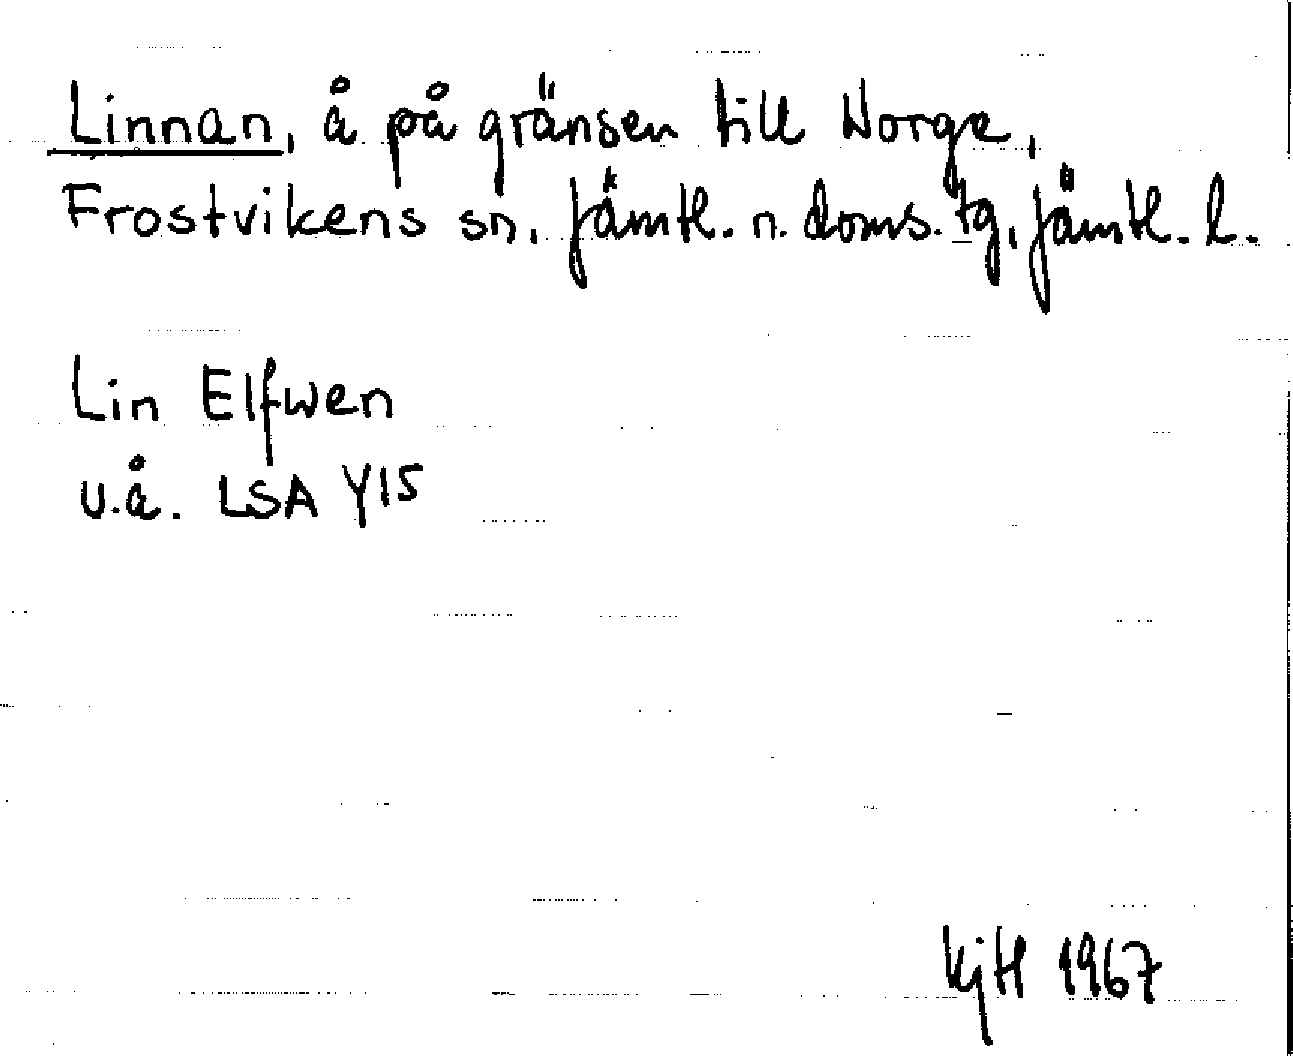 Linnan, å på gränsen till Norge,
Frostvikens sn, Jämtl. n. doms. tg, Jämtl. l.
Lin Elfwen
u.å. LSA Y15
KjH 1967